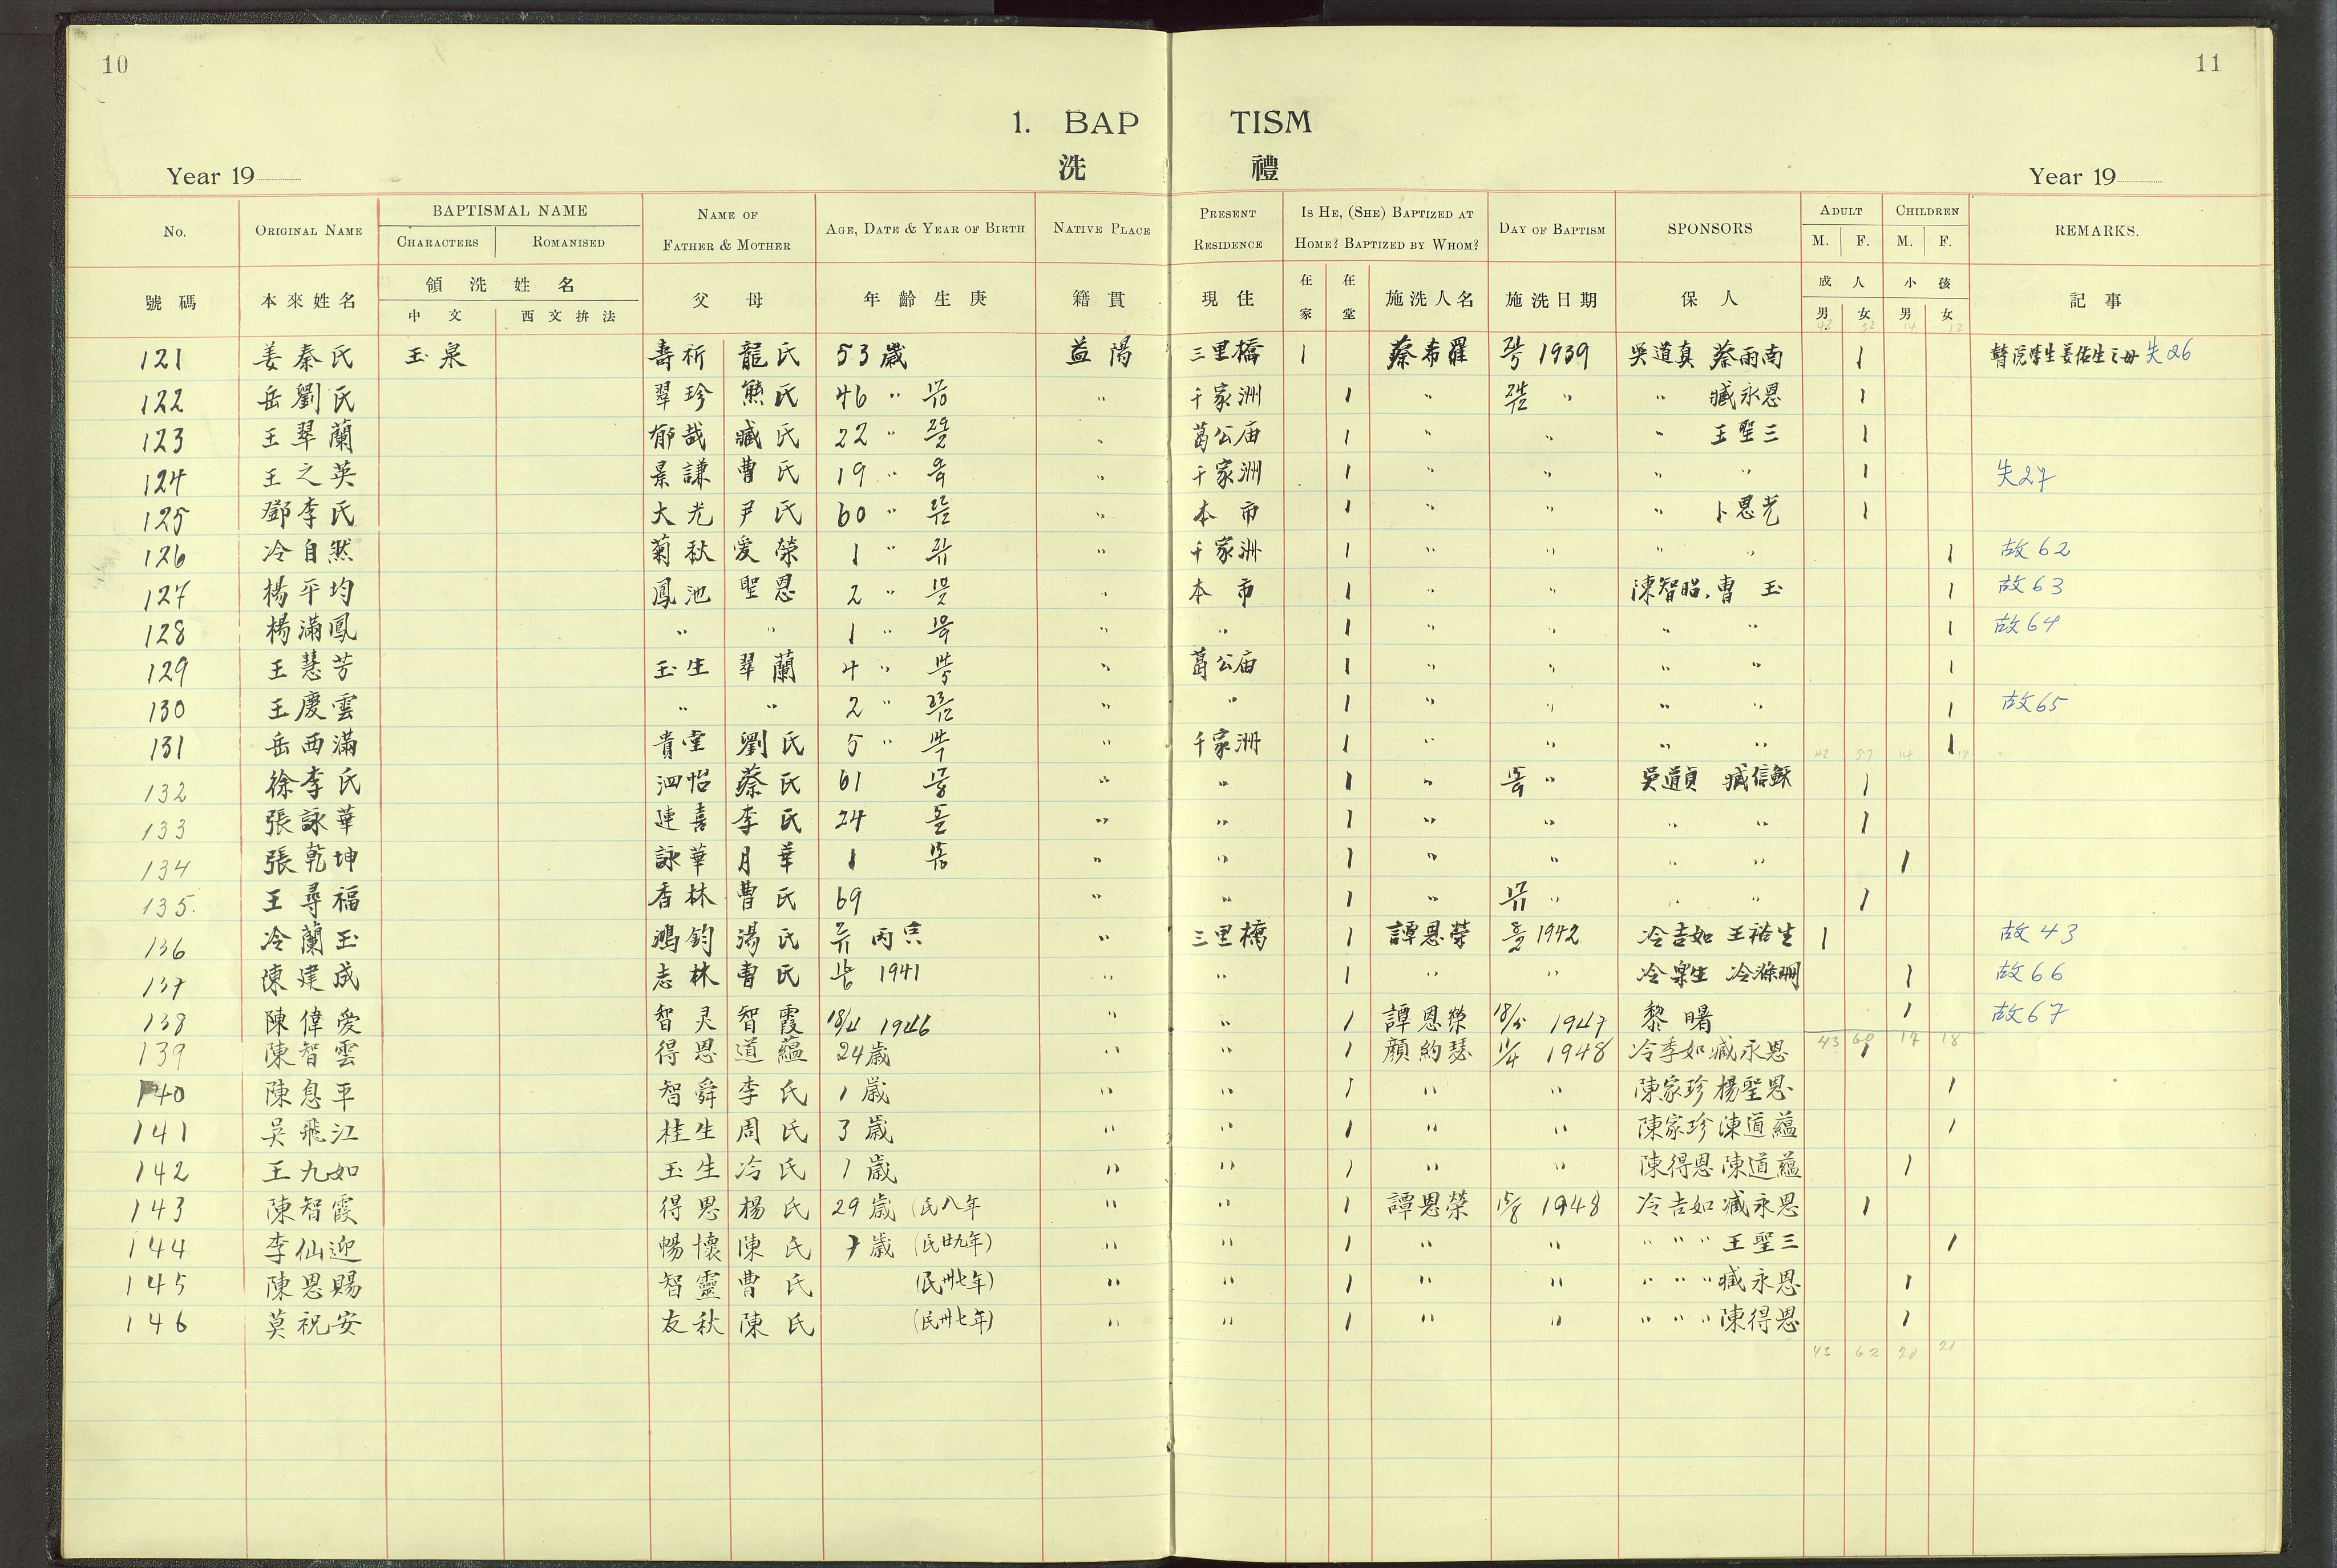 10
11
1. BAP TISM
洗 禮
Year 19
Year 19
No. ORIGINAL NAME BAPTISMAL NAME CHARACTERS ROMANISED NAME OF FATHER & MOTHER AGE, DATE & YEAR OF BIRTH NATIVE PLACE PRESENT RESIDENCE IS HE, (SHE) BAPTIZED AT HOME? BAPTIZED BY WHOM? DAY OF BAPTISM SPONSORS ADULT M. F. CHILDREN M. F. REMARKS.
號碼 本來姓名 領洗姓名 中文 西文拚法 父母 年齡生庚 籍貫 現住 在家 在堂 施洗人名 施洗日期 保人 成人 男 女 小孩 男 女 記事
121 姜秦氏 玉泉 壽祈 龍氏 53歲 益陽 三里橋 1 蔡希羅 1939 吳道真 蔡雨南 1 失26
122 岳劉氏 翠珍 熊氏 46 " " 千家洲 1 " " " 臧永恩 1
123 王翠蘭 郁哉 臧氏 22 " " 葛公庙 1 " " " 王聖三 1
124 王之英 景謙 曹氏 19 " " 千家洲 1 " " " " 1 失27
125 鄧李氏 大光 尹氏 60 " " 本市 1 " " " 卜恩光 1
126 冷自然 菊秋 愛榮 1 " " 千家洲 1 " " " " 1 故62
127 楊平均 鳳池 聖恩 2 " " 本市 1 " " 陳智昭.曹玉 1 故63
128 楊滿鳳 " " 1 " " " 1 " " " " 1 故64
129 王慧芳 玉生 翠蘭 4 " " 葛公庙 1 " " " " 1
130 王慶雲 " " 2 " " " 1 " " " " 1 故65
131 岳西滿 貴堂 劉氏 5 " " 千家洲 1 " " " " 1
132 徐李氏 泗怡 蔡氏 61 " " 1 " " 吳道貞 臧信穌 1
133 張詠華 連喜 李氏 24 " " 1 " " " " 1
134 張乾坤 詠華 月華 1 " " 1 " " " " 1
135. 王尋福 香林 曹氏 69 " " 1 " " " " 1
136 冷蘭玉 鴻鈞 湯氏 丙寅 " 三里橋 1 譚恩榮 1942 冷吉如 王祐生 1 故43
137 陳建成 志林 曹氏 1941 " " 1 " " 冷樂生 冷滌珊 1 故66
138 陳偉愛 智灵 智霞 18/4 1946 " " 1 譚恩榮 18/5 1947 黎曙 1 故67
139 陳智雲 得恩 道蘊 24歲 " " 1 顏約瑟 11/4 1948 冷季如 臧永恩 1
43 60 17 18
140 陳息平 智舜 李氏 1歲 " " 1 " " 陳家珍 楊聖恩 1
141 吳飛江 桂生 周氏 3歲 " " 1 " " 陳家珍 陳道蘊 1
142 王九如 玉生 冷氏 1歲 " " 1 " " 陳得恩 陳道蘊 1
143 陳智霞 得恩 楊氏 29歲 (民八年 " " 1 譚恩榮 15/8 1948 冷吉如 臧永恩 1
144 李仙迎 暢懷 陳氏 7歲 (民廿九年) " " 1 " " " " " 王聖三 1
145 陳恩賜 智靈 曹氏 (民卅七年) " " 1 " " " " " 臧永恩 1
146 莫祝安 友秋 陳氏 (民卅七年) " " 1 " " " " " 陳得恩 1
43 62 20 21